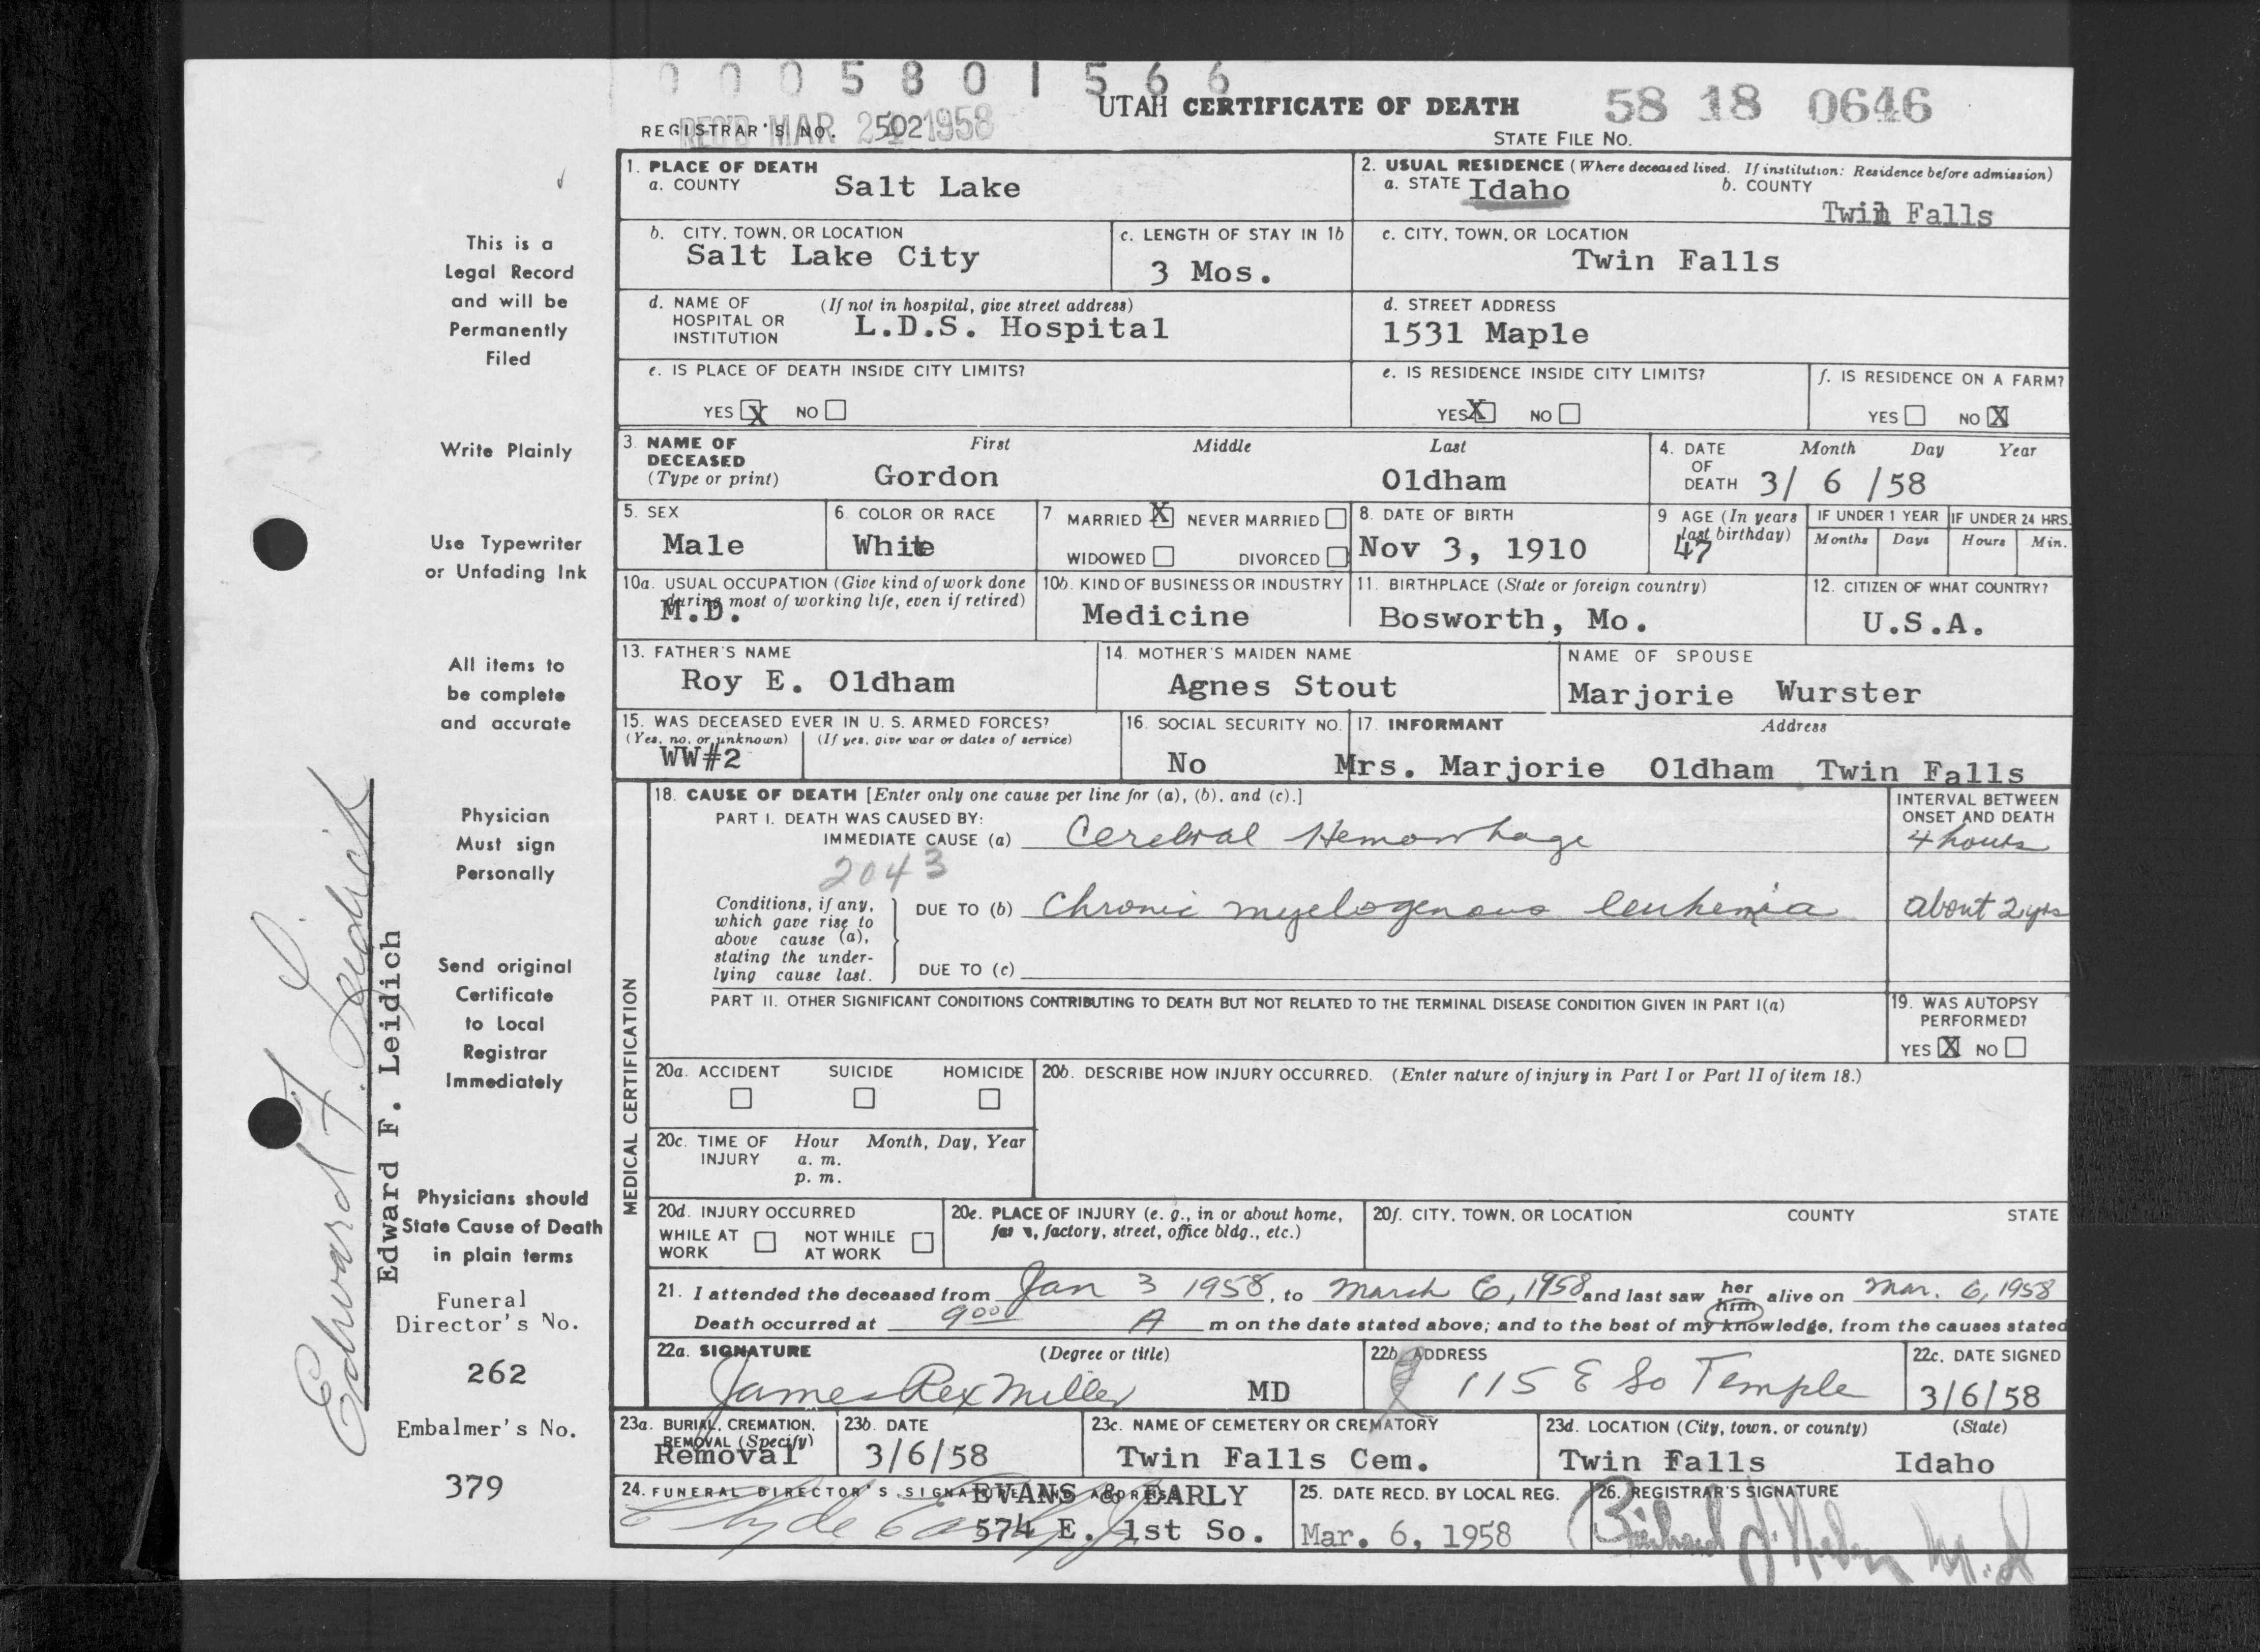 0 0 0 5 8 0 1 5 6 6
UTAH CERTIFICATE OF DEATH
58 18 0646
REGISTRAR'S NO. 502
REC'D MAR 24 1958
STATE FILE NO.
1. PLACE OF DEATH
a. COUNTY Salt Lake
2. USUAL RESIDENCE (Where deceased lived. If institution: Residence before admission)
a. STATE Idaho b. COUNTY Twin Falls
b. CITY, TOWN, OR LOCATION
Salt Lake City
c. LENGTH OF STAY IN 1b
3 Mos.
c. CITY, TOWN, OR LOCATION
Twin Falls
d. NAME OF HOSPITAL OR INSTITUTION (If not in hospital, give street address)
L.D.S. Hospital
d. STREET ADDRESS
1531 Maple
e. IS PLACE OF DEATH INSIDE CITY LIMITS?
YES X NO
e. IS RESIDENCE INSIDE CITY LIMITS?
YES X NO
f. IS RESIDENCE ON A FARM?
YES NO X
3. NAME OF DECEASED (Type or print)
First Middle Last
Gordon Oldham
4. DATE OF DEATH Month Day Year
3/ 6 /58
5. SEX
Male
6. COLOR OR RACE
White
7 MARRIED X NEVER MARRIED
WIDOWED DIVORCED
8. DATE OF BIRTH
Nov 3, 1910
9 AGE (In years last birthday)
47
IF UNDER 1 YEAR IF UNDER 24 HRS.
Months Days Hours Min.
10a. USUAL OCCUPATION (Give kind of work done during most of working life, even if retired)
M.D.
10b. KIND OF BUSINESS OR INDUSTRY
Medicine
11. BIRTHPLACE (State or foreign country)
Bosworth, Mo.
12. CITIZEN OF WHAT COUNTRY?
U.S.A.
13. FATHER'S NAME
Roy E. Oldham
14. MOTHER'S MAIDEN NAME
Agnes Stout
NAME OF SPOUSE
Marjorie Wurster
15. WAS DECEASED EVER IN U. S. ARMED FORCES?
(Yes, no, or unknown) (If yes, give war or dates of service)
WW#2
16. SOCIAL SECURITY NO.
No
17. INFORMANT Address
Mrs. Marjorie Oldham Twin Falls
MEDICAL CERTIFICATION
18. CAUSE OF DEATH [Enter only one cause per line for (a), (b), and (c).]
PART I. DEATH WAS CAUSED BY:
IMMEDIATE CAUSE (a) Cerebral Hemorrhage
INTERVAL BETWEEN ONSET AND DEATH
4 hours
2043
Conditions, if any, which gave rise to above cause (a), stating the underlying cause last.
DUE TO (b) Chronic myelogenous leukemia
about 2 yrs
DUE TO (c)
PART II. OTHER SIGNIFICANT CONDITIONS CONTRIBUTING TO DEATH BUT NOT RELATED TO THE TERMINAL DISEASE CONDITION GIVEN IN PART I(a)
19. WAS AUTOPSY PERFORMED?
YES X NO
20a. ACCIDENT SUICIDE HOMICIDE
20b. DESCRIBE HOW INJURY OCCURRED. (Enter nature of injury in Part I or Part II of item 18.)
20c. TIME OF INJURY Hour Month, Day, Year
a. m.
p. m.
20d. INJURY OCCURRED
WHILE AT WORK NOT WHILE AT WORK
20e. PLACE OF INJURY (e. g., in or about home, farm, factory, street, office bldg., etc.)
20f. CITY, TOWN, OR LOCATION COUNTY STATE
21. I attended the deceased from Jan 3 1958, to March 6, 1958 and last saw her him alive on Mar. 6, 1958
Death occurred at 9 00 A m on the date stated above; and to the best of my knowledge, from the causes stated
22a. SIGNATURE (Degree or title)
James Rex Miller MD
22b. ADDRESS
115 E So Temple
22c. DATE SIGNED
3/6/58
23a. BURIAL, CREMATION, REMOVAL (Specify)
Removal
23b. DATE
3/6/58
23c. NAME OF CEMETERY OR CREMATORY
Twin Falls Cem.
23d. LOCATION (City, town, or county) (State)
Twin Falls Idaho
24. FUNERAL DIRECTOR'S SIGNATURE AND ADDRESS
EVANS & EARLY
574 E. 1st So.
25. DATE RECD. BY LOCAL REG.
Mar. 6, 1958
26. REGISTRAR'S SIGNATURE
This is a
Legal Record
and will be
Permanently
Filed
Write Plainly
Use Typewriter
or Unfading Ink
All items to
be complete
and accurate
Physician
Must sign
Personally
Send original
Certificate
to Local
Registrar
Immediately
Physicians should
State Cause of Death
in plain terms
Funeral
Director's No.
262
Embalmer's No.
379
Edward F. Leidich
Edward F. Leidich